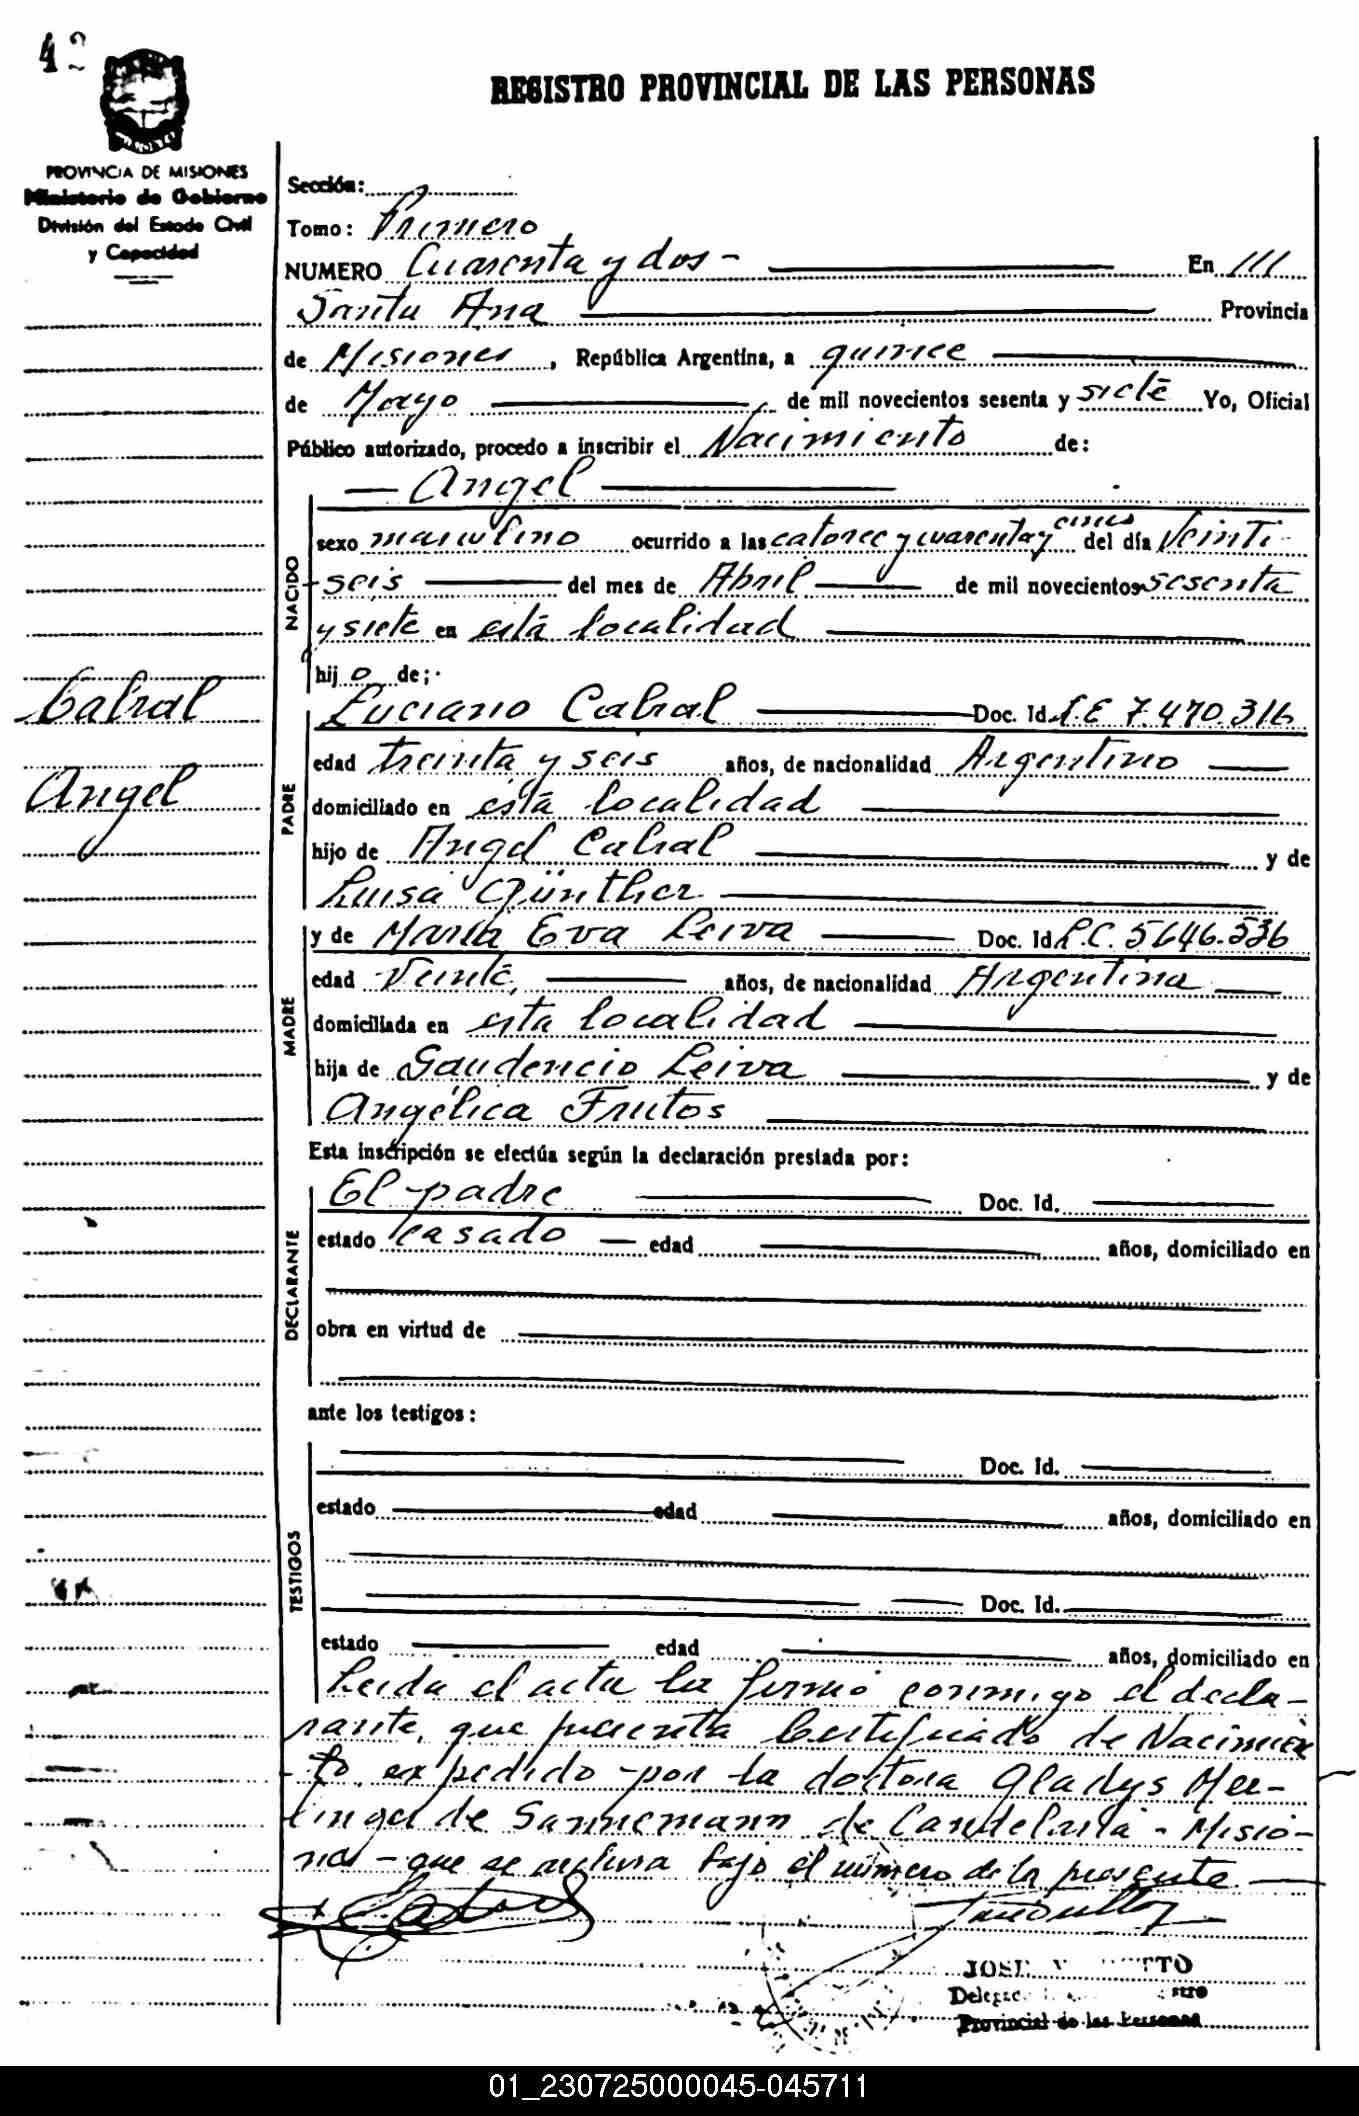 42
REGISTRO PROVINCIAL DE LAS PERSONAS
PROVINCIA DE MISIONES
Ministerio de Gobierno
División del Estado Civil
y Capacidad
Sección:
Tomo: Primero
NUMERO Cuarenta y dos - En ///
Santa Ana Provincia
de Misiones, República Argentina, a quince
de Mayo de mil novecientos sesenta y siete Yo, Oficial
Público autorizado, procedo a inscribir el Nacimiento de:
— Angel
NACIDO
sexo masculino ocurrido a las catorce y cuarenta y cinco del día Veinti-
seis del mes de Abril de mil novecientos sesenta
y siete en está localidad
hijo de;
Cabral
Angel
PADRE
Luciano Cabral Doc. Id. L.E 7.470.316
edad treinta y seis años, de nacionalidad Argentino
domiciliado en está localidad
hijo de Angel Cabral y de
Luisa Günther
MADRE
y de María Eva Leiva Doc. Id. L.C. 5646.536
edad Veinte, años, de nacionalidad Argentina
domiciliada en esta localidad
hija de Gaudencio Leiva y de
Angélica Frutos
Esta inscripción se efectúa según la declaración prestada por:
DECLARANTE
El padre Doc. Id.
estado Casado edad años, domiciliado en
obra en virtud de
ante los testigos:
TESTIGOS
Doc. Id.
estado edad años, domiciliado en
Doc. Id.
estado edad años, domiciliado en
Leida el acta la firmó conmigo el decla-
rante, que presenta Certificado de Nacimien
to, expedido por la doctora Gladys Mer-
linga de Sannemann de Candelaria - Misio-
nes - que se archiva bajo el número de la presente
JOSE TTO
Provincial de las Personas
01_230725000045-045711